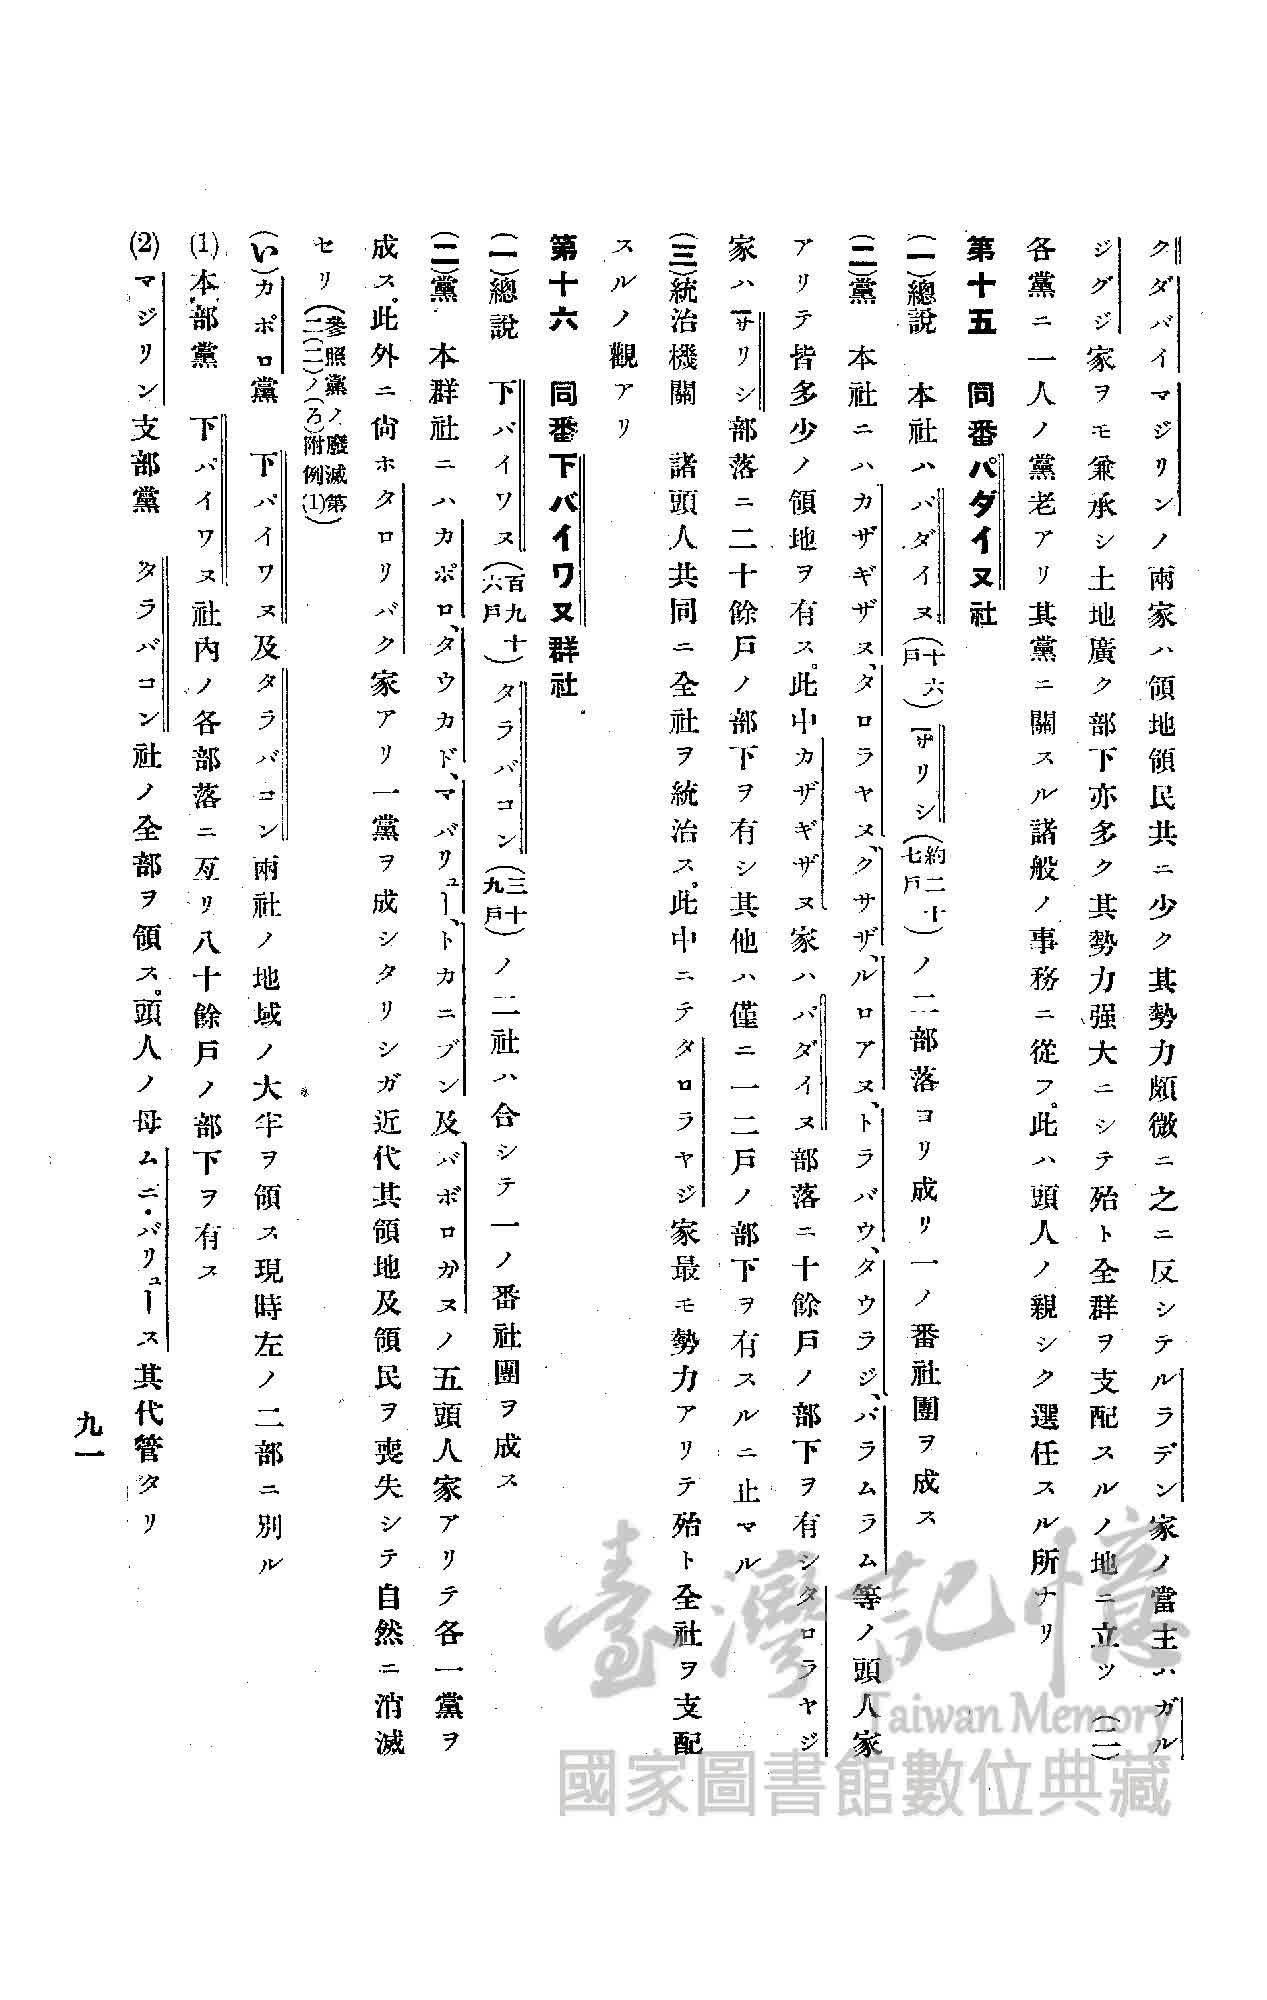 クダバイマジリンノ兩家ハ領地領民共ニ少ク其勢力頗微ニ之ニ反シテルラデン家ノ當主ハガル
ジグジ家ヲモ兼承シ土地廣ク部下亦多ク其勢力强大ニシテ殆ト全群ヲ支配スルノ地ニ立ツ (二)
各黨ニ一人ノ黨老アリ其黨ニ關スル諸般ノ事務ニ從フ。此ハ頭人ノ親シク選任スル所ナリ
第十五 同番パダイヌ社
(一)總說 本社ハパダイヌ(十六戶)サリシ(約二十七戶)ノ二部落ヨリ成リ一ノ番社團ヲ成ス
(二)黨 本社ニハカザギザヌ、タロラヤス、クサザ、ルロアヌ、トラバウ、タウラジ、バラムラム等ノ頭人家
アリテ皆多少ノ領地ヲ有ス。此中カザギザヌ家ハバダイヌ部落ニ十餘戶ノ部下ヲ有シタロラヤジ
家ハサリシ部落ニ二十餘戶ノ部下ヲ有シ其他ハ僅ニ一二戶ノ部下ヲ有スルニ止マル
(三)統治機關 諸頭人共同ニ全社ヲ統治ス。此中ニテタロラヤジ家最モ勢力アリテ殆ト全社ヲ支配
スルノ觀アリ
第十六 同番下バイワヌ群社
(一)總說 下バイワヌ(百九十六戶)タラバコン(三十九戶)ノ二社ハ合シテ一ノ番社團ヲ成ス
(二)黨 本群社ニハカポロ、タウカド、マバリュー、トカニブン及バボロガヌノ五頭人家アリテ各一黨ヲ
成ス。此外ニ尙ホタロリバク家アリ一黨ヲ成シタリシガ近代其領地及領民ヲ喪失シテ自然ニ消滅
セリ(參照黨ノ廢滅第二(二)ノ(ろ)附例(1))
(い)カポロ黨 下バイワヌ及タラバコン兩社ノ地域ノ大半ヲ領ス現時左ノ二部ニ別ル
(1)本部黨 下バイワヌ社內ノ各部落ニ亙リ八十餘戶ノ部下ヲ有ス
(2)マジリン支部黨 タラバコン社ノ全部ヲ領ス。頭人ノ母ムニ・バリュース其代管タリ
九一
臺灣記憶
Taiwan Memory
國家圖書館數位典藏